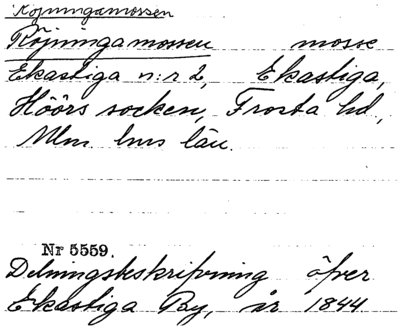 Röjningamossen
Röjningamossen mosse
Ekastiga n:r 2, Ekastiga,
Höörs socken, Frosta hd,
Mlm hus län.
Nr 5559.
Delningsbeskrifvning öfver
Ekastiga By, år 1844